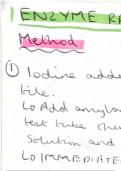 ENZYME
Method
① Iodine adde
tile.
↳ Add amylas
test tube
Solution and
↳ IMMEDIATE